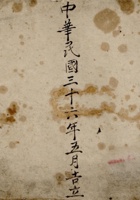 中華民國三十六年五月吉立